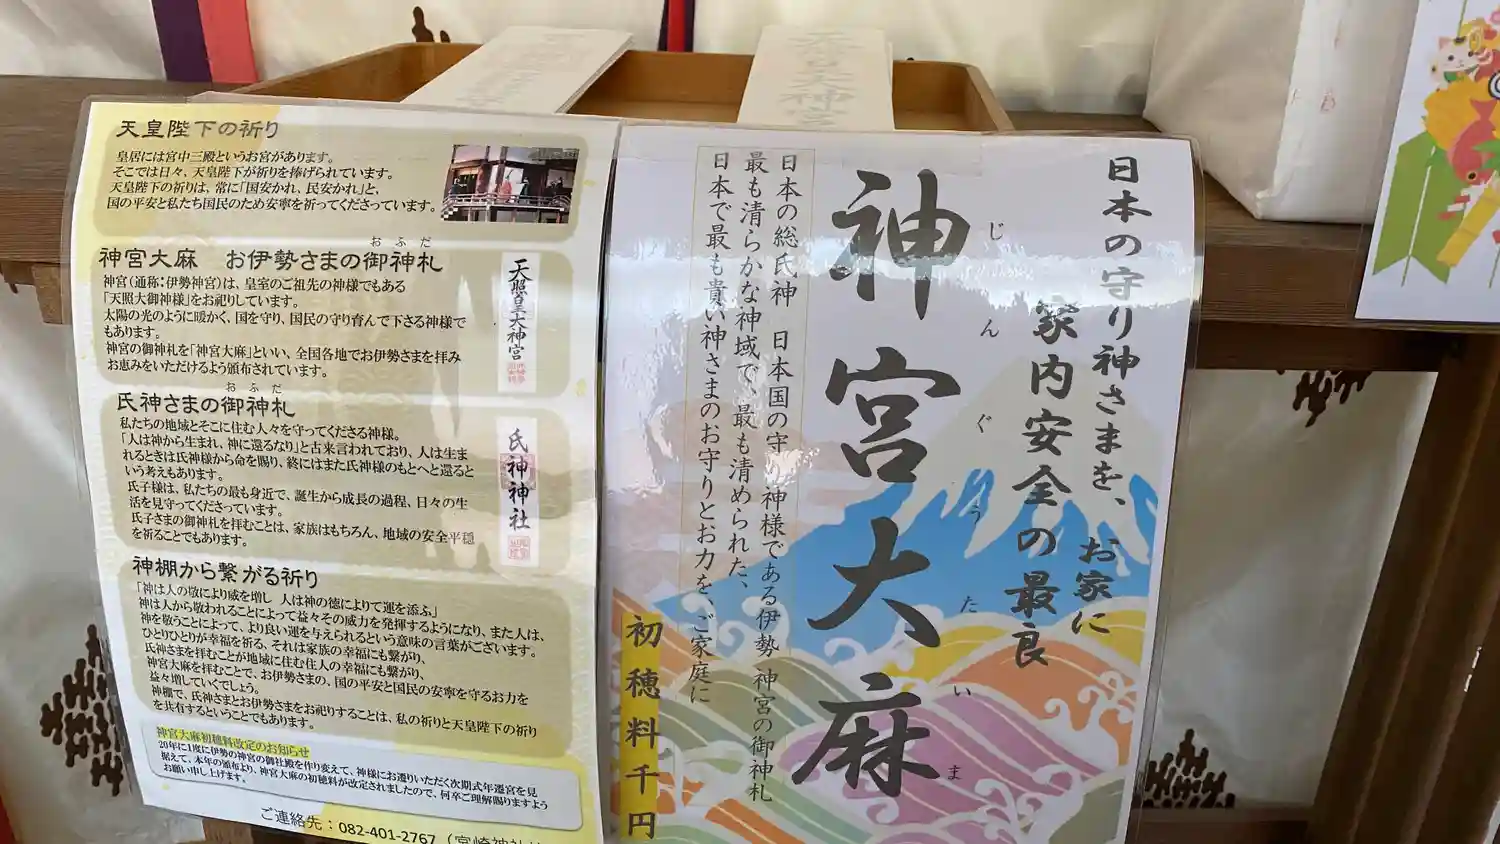 天皇陛下の祈り
皇居には宮中三殿というお宮があります。
そこでは日々、天皇陛下が祈りを捧げられています。
天皇陛下の祈りは、常に「国安かれ、民安かれ」と、
国の平安と私たち国民のため安寧を祈ってくださっています。
おふだ
神宮大麻　お伊勢さまの御神札
神宮（通称：伊勢神宮）は、皇室のご祖先の神様でもある
「天照大御神様」をお祀りしています。
太陽の光のように暖かく、国を守り、国民の守り育んで下さる神様で
もあります。
神宮の御神札を「神宮大麻」といい、全国各地でお伊勢さまを拝み
お恵みをいただけるよう頒布されています。
天照皇大神宮
おふだ
氏神さまの御神札
私たちの地域とそこに住む人々を守ってくださる神様。
「人は神から生まれ、神に還るなり」と古来言われており、人は生ま
れるときは氏神様から命を賜り、終にはまた氏神様のもとへと還ると
いう考えもあります。
氏子様は、私たちの最も身近で、誕生から成長の過程、日々の生
活を見守ってくださっています。
氏子さまの御神札を拝むことは、家族はもちろん、地域の安全平穏
を祈ることでもあります。
氏神神社
神棚から繋がる祈り
「神は人の敬により威を増し　人は神の徳によりて運を添ふ」
神は人から敬われることによって益々その威力を発揮するようになり、また人は、
神を敬うことによって、より良い運を与えられるという意味の言葉がございます。
ひとりひとりが幸福を祈る、それは家族の幸福にも繋がり、
氏神さまを拝むことが地域に住む住人の幸福にも繋がり、
神宮大麻を拝むことで、お伊勢さまの、国の平安と国民の安寧を守るお力を
益々増していくでしょう。
神棚で、氏神さまとお伊勢さまをお祀りすることは、私の祈りと天皇陛下の祈り
を共有するということでもあります。
神宮大麻初穂料改定のお知らせ
20年に1度に伊勢の神宮の御社殿を作り変えて、神様にお遷りいただく次期式年遷宮を見
据えて、本年の頒布より、神宮大麻の初穂料が改定されましたので、何卒ご理解賜りますよう
お願い申し上げます。
ご連絡先：082-401-2767（宮崎神社
日本の守り神さまを、お家に
家内安全の最良
神宮大麻
じんぐうたいま
日本の総氏神　日本国の守り神様である伊勢 神宮の御神札
最も清らかな神域で、最も清められた、
日本で最も貴い神さまのお守りとお力を、ご家庭に
初穂料千円